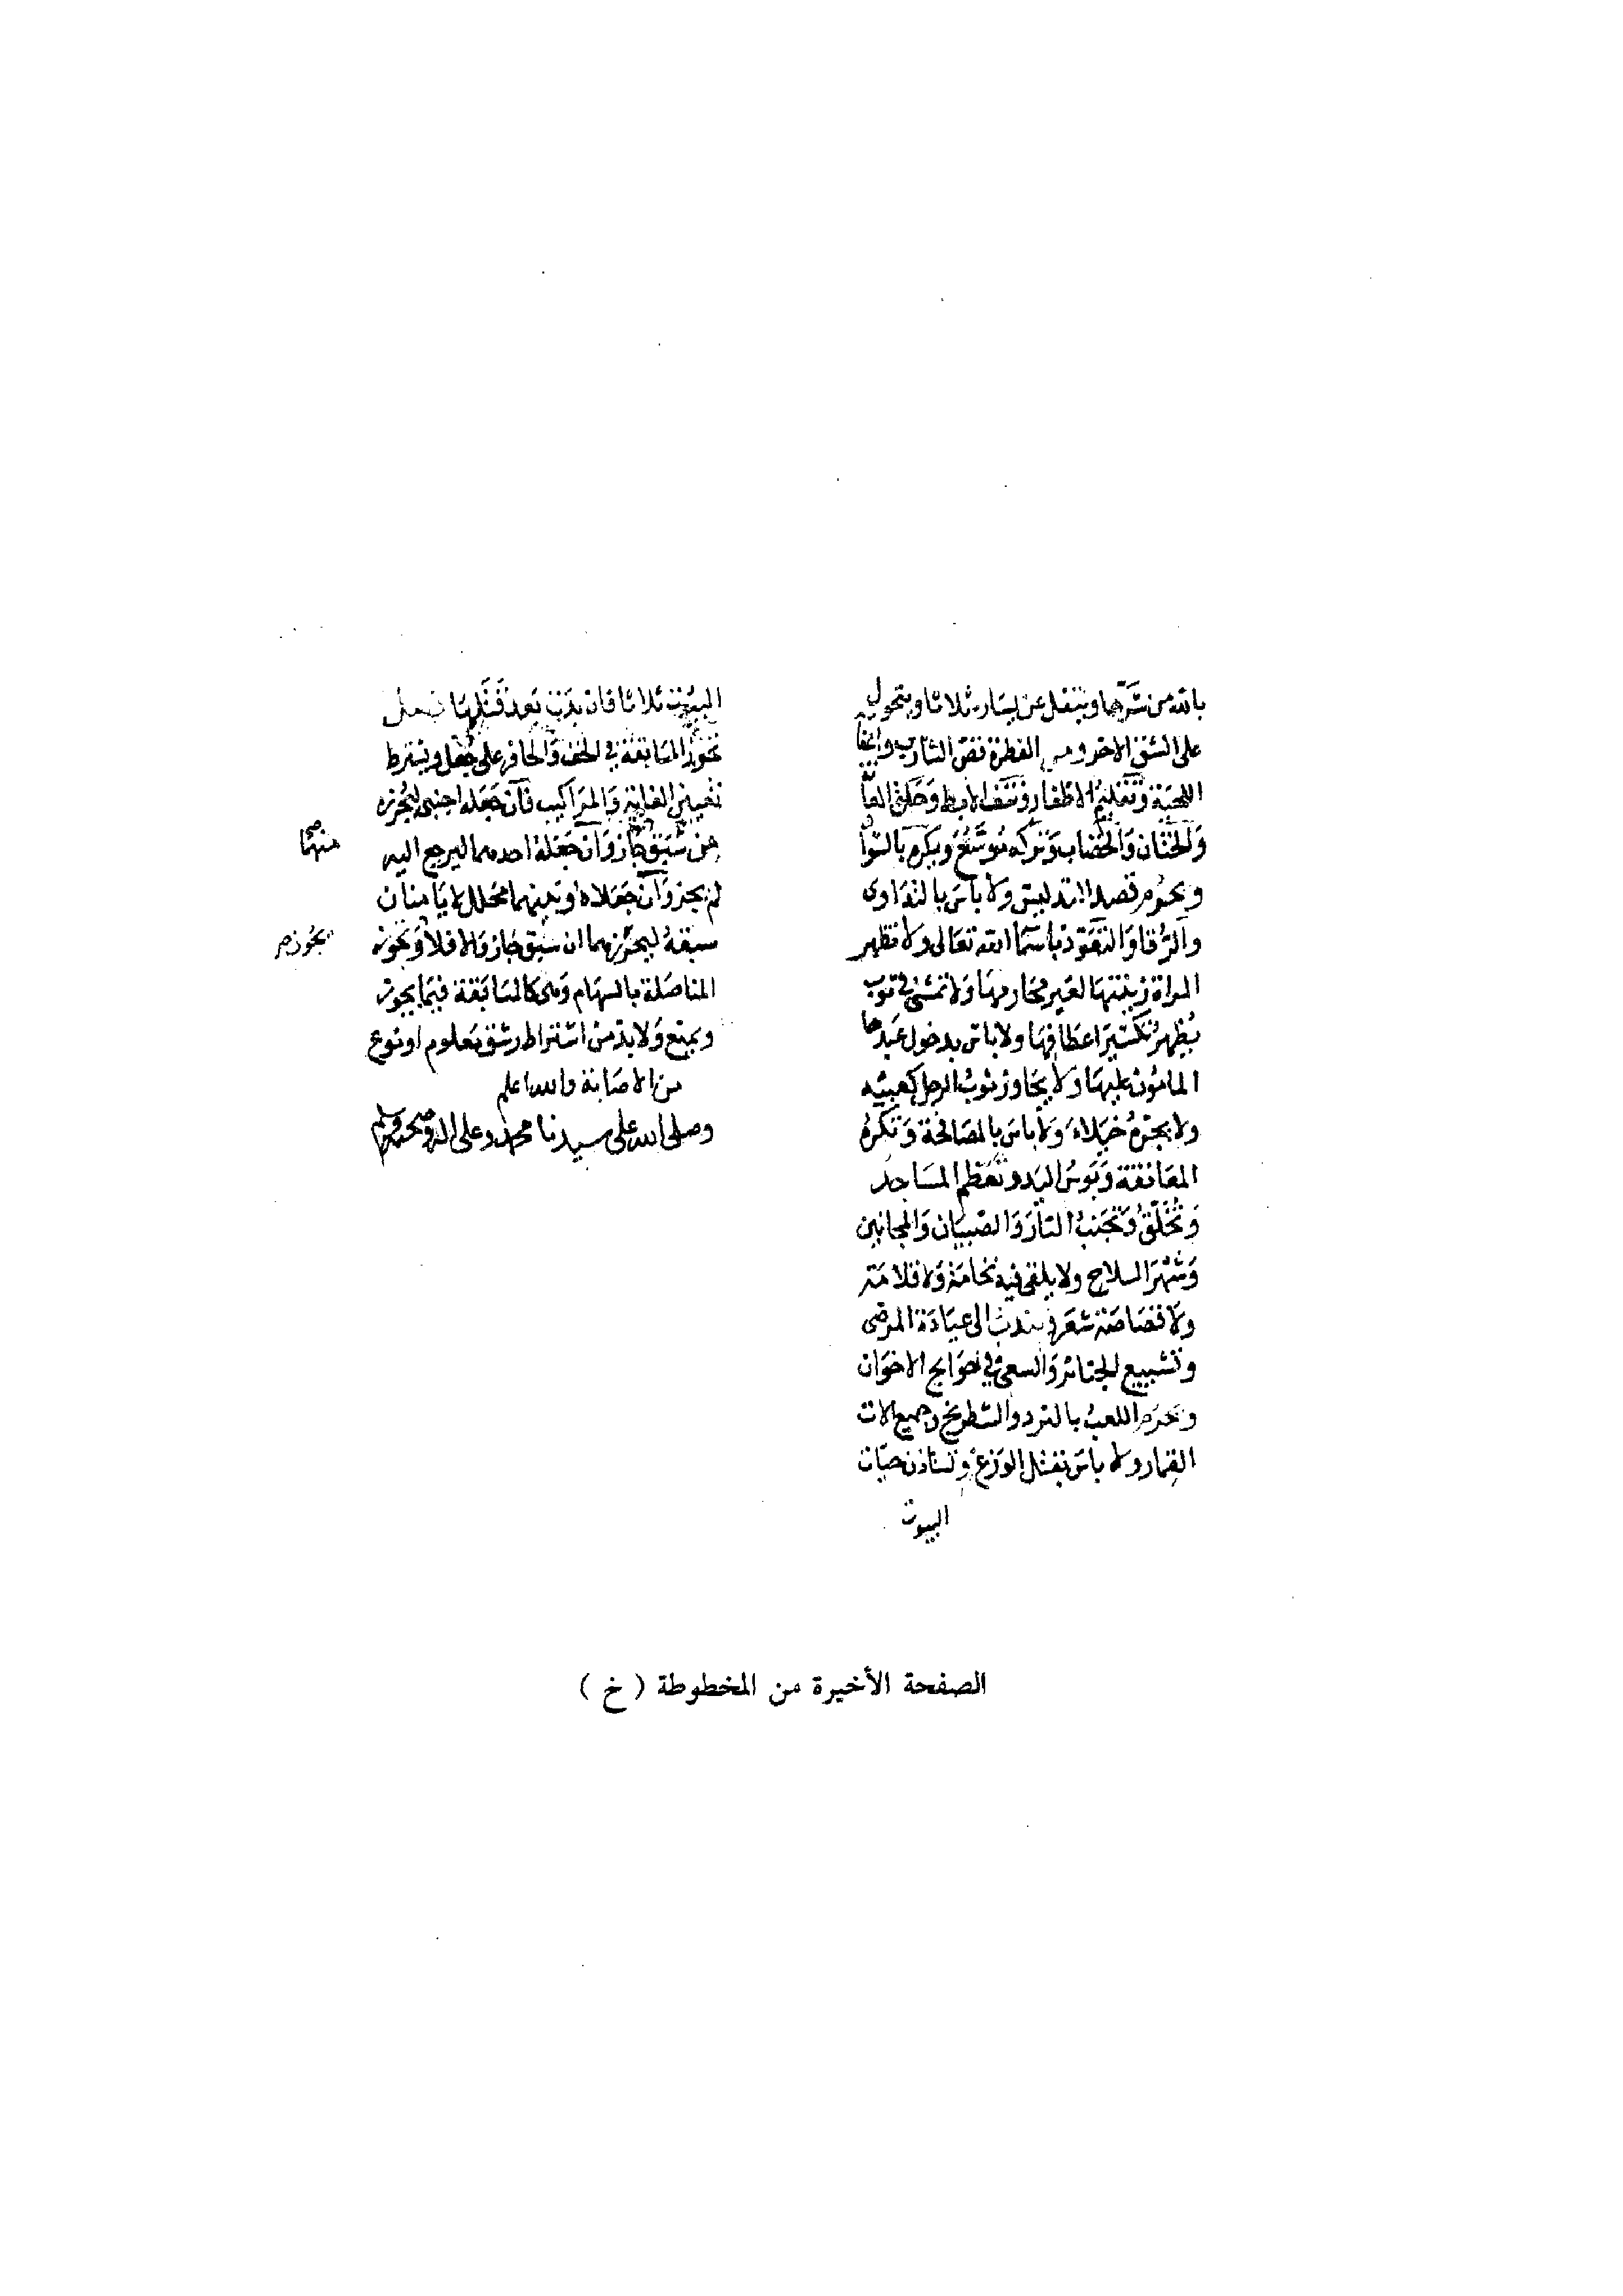 بالله من شرها ويتفل عن يساره ثلاثا ويتحول
على الشق الاخر ومن الفطرة قص الشارب واعفا
اللحية وتقليم الاظفار ونتف الابط وحلق العا
والختان والخضاب وتركه موسع ويكره بالسوا
ويحرم قصد التدليس ولا باس بالتداوى
والرقا والتعوذ باسما الله تعالى ولا تظهر
المراة زينتها لغير محارمها ولا تمشى في ثوب
يظهر تكسير اعطافها ولا باس بدخول عبدها
المامون عليها ولا يجاوز ثوب الرجل كعبيه
ولا يجره خيلاء ولا باس بالمصافحة وتكره
المعانقة وبوس اليد وتعظم المساجد
وتخلق وتجنب النار والصبيان والمجانين
وشهر السلاح ولا يلقى فيه نخامة ولا قلامة
ولا قصاصة شعر ويندب الى عيادة المرضى
وتشييع الجنائز والسعي في حوايج الاخوان
ويحرم اللعب بالنرد والشطرنج وجميع الات
القمار ولا باس بقتل الوزغ وتستاذن حيات
البيوت
البيوت ثلاثا فان بدت بعد قتلها فصل
تجوز المسابقة في الخف والحافر على جعل ويشترط
تعيين الغاية والمراكيب فان جعله اجنبى ليحرزه
من سبق جاز وان جعله احدهما ليرجع اليه
منهما صح
لم يجز وان جعلاه وبينهما محلل لا يامنان
سبقه ليحرزهما ان سبق جاز والا فلا وتجوز
يجوز صح
المناضلة بالسهام وهى كالمسابقة فيما يجوز
ويمتنع ولا بد من اشتراط رشق معلوم او نوع
من الاصابة والله اعلم
وصلى الله على سيدنا محمد وعلى اله وصحبه وسلم
الصفحة الأخيرة من المخطوطة ( خ )